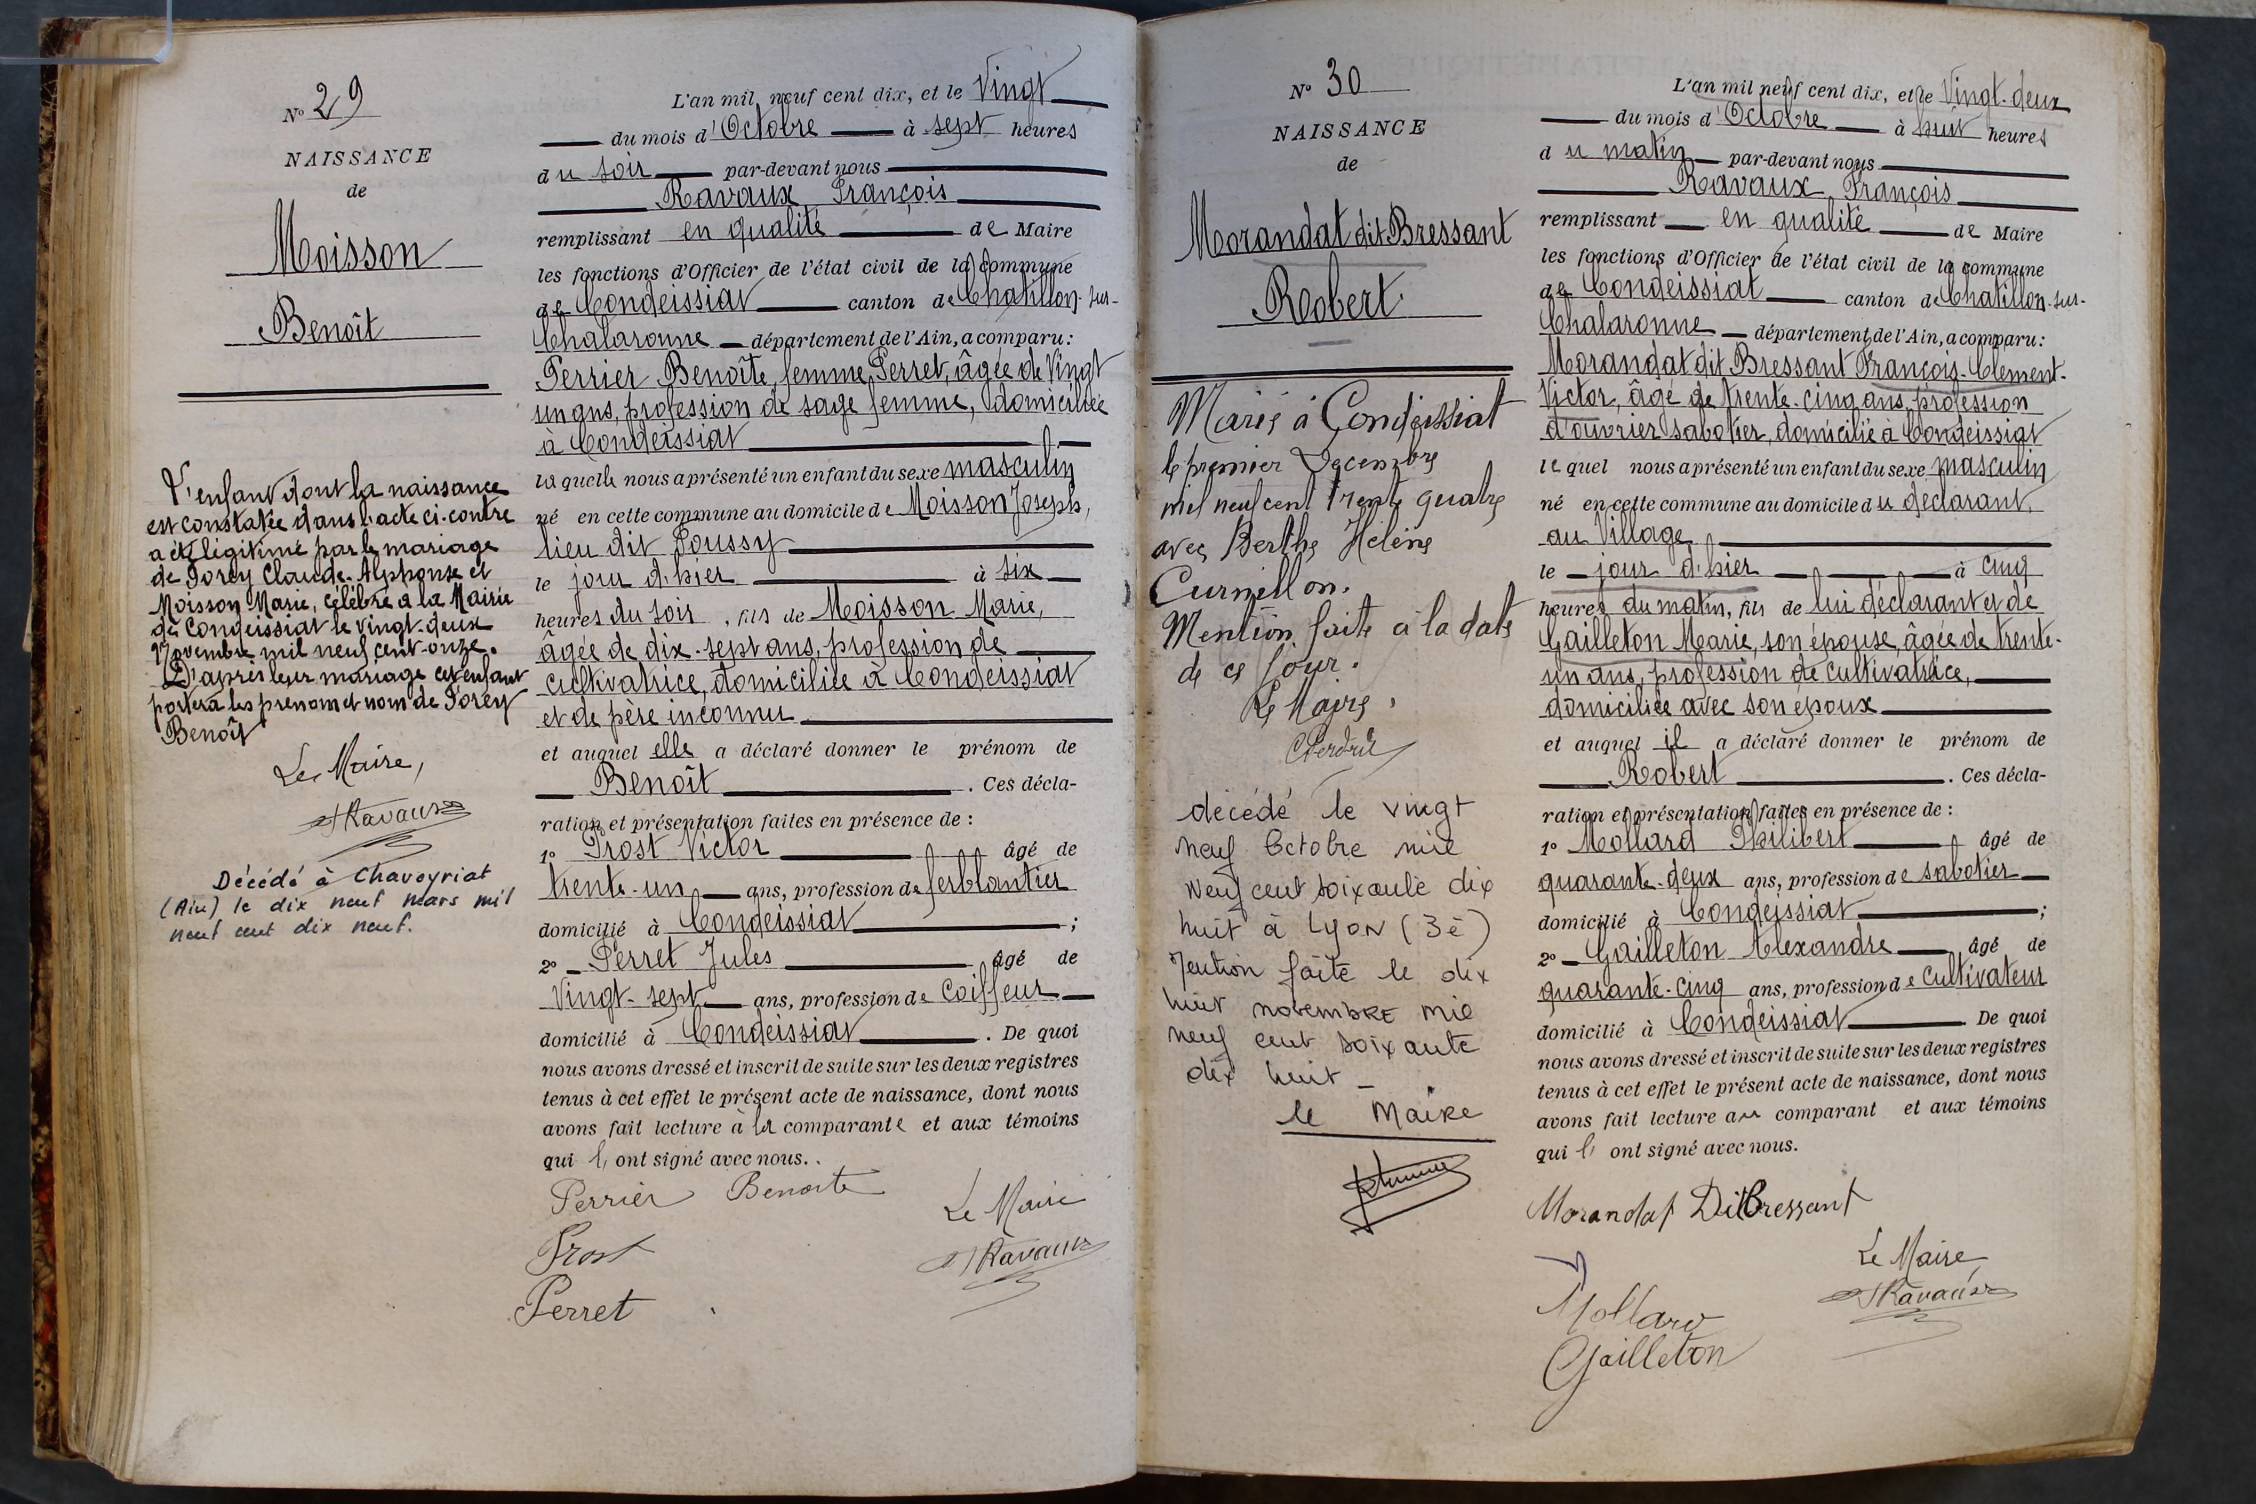 N° 29
NAISSANCE
de
Moisson
Benoît
L'enfant dont la naissance
est constatée dans l'acte ci-contre
a été légitimé par le mariage
de Porey Claude-Alphonse et
Moisson Marie, célébré à la Mairie
de Condeissiat le vingt-deux
Novembre mil neuf cent-onze.
D'après leur mariage cet enfant
portera les prénom et nom de Porey
Benoît
Le Maire,
Ravaux
Décédé à Chaveyriat
(Ain) le dix neuf mars mil
neuf cent dix neuf.
L'an mil neuf cent dix, et le Vingt
du mois d'Octobre à sept heures
du soir par-devant nous
Ravaux François
remplissant en qualité de Maire
les fonctions d'Officier de l'état civil de la commune
de Condeissiat canton de Chatillon-sur-
Chalaronne département de l'Ain, a comparu:
Perrier Benoîte, femme Perret, âgée de Vingt
un ans, profession de sage femme, domiciliée
à Condeissiat
laquelle nous a présenté un enfant du sexe masculin
né en cette commune au domicile de Moisson Joseph,
lieu dit Poussy
le jour d'hier à six
heures du soir, fils de Moisson Marie,
âgée de dix-sept ans, profession de
cultivatrice, domiciliée à Condeissiat
et de père inconnu
et auquel elle a déclaré donner le prénom de
Benoît. Ces décla-
ration et présentation faites en présence de :
1° Prost Victor âgé de
trente-un ans, profession de ferblantier
domicilié à Condeissiat ;
2° Perret Jules âgé de
Vingt-sept ans, profession de Coiffeur
domicilié à Condeissiat. De quoi
nous avons dressé et inscrit de suite sur les deux registres
tenus à cet effet le présent acte de naissance, dont nous
avons fait lecture à la comparante et aux témoins
qui l' ont signé avec nous..
Perrier Benoite
Le Maire
Prost
Ravaux
Perret
N° 30
NAISSANCE
de
Morandat dit Bressant
Robert
Marié à Condeissiat
le premier Décembre
mil neuf cent trente quatre
avec Berthe Hélène
Curnillon.
Mention faite à la date
de ce jour.
Le Maire,
décédé le vingt
neuf Octobre mil
neuf cent soixante dix
huit à LYON (3è)
Mention faite le dix
huit novembre mil
neuf cent soixante
dix huit
le Maire
L'an mil neuf cent dix, et le Vingt-deux
du mois d'Octobre à huit heures
du matin par-devant nous
Ravaux François
remplissant en qualité de Maire
les fonctions d'Officier de l'état civil de la commune
de Condeissiat canton de Chatillon-sur-
Chalaronne département de l'Ain, a comparu:
Morandat dit Bressant François-Clément-
Victor, âgé de trente-cinq ans, profession
d'ouvrier sabotier, domicilié à Condeissiat
lequel nous a présenté un enfant du sexe masculin
né en cette commune au domicile du déclarant,
au Village
le jour d'hier à cinq
heures du matin, fils de lui déclarant et de
Gailleton Marie, son épouse, âgée de trente-
un ans, profession de cultivatrice,
domiciliée avec son époux
et auquel il a déclaré donner le prénom de
Robert. Ces décla-
ration et présentation faites en présence de :
1° Mollard Philibert âgé de
quarante-deux ans, profession de sabotier
domicilié à Condeissiat ;
2° Gailleton Alexandre âgé de
quarante-cinq ans, profession de Cultivateur
domicilié à Condeissiat. De quoi
nous avons dressé et inscrit de suite sur les deux registres
tenus à cet effet le présent acte de naissance, dont nous
avons fait lecture au comparant et aux témoins
qui l' ont signé avec nous.
Morandat Dit Bressant
Le Maire
Ravaux
Mollard
Gailleton